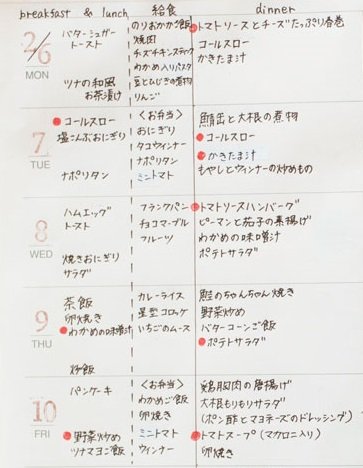 breakfast & lunch
給食
dinner
2/6
MON
バターシュガー
トースト
ツナの和風
お茶漬け
のりおかかご飯
焼肉
チーズチキンスティック
わかめ入りパスタ
豆とひじきの煮物
りんご
トマトソースとチーズたっぷり春巻
コールスロー
かきたま汁
7
TUE
コールスロー
塩こんぶおにぎり
ナポリタン
〈お弁当〉
おにぎり
タコウィンナー
ナポリタン
ミニトマト
鯖缶と大根の煮物
コールスロー
かきたま汁
もやしとウィンナーの炒めもの
8
WED
ハムエッグ
トースト
焼きおにぎり
サラダ
フランクパン
チョコマーブル
フルーツ
トマトソースハンバーグ
ピーマンと茄子の素揚げ
わかめの味噌汁
ポテトサラダ
9
THU
茶飯
卵焼き
わかめの味噌汁
炒飯
カレーライス
星型コロッケ
いちごのムース
鮭のちゃんちゃん焼き
野菜炒め
バターコーンご飯
ポテトサラダ
10
FRI
パンケーキ
野菜炒め
ツナマヨご飯
〈お弁当〉
わかめご飯
卵焼き
ミニトマト
ウィンナー
鶏胸肉の唐揚げ
大根もりもりサラダ
(ポン酢とマヨネーズのドレッシング)
トマトスープ(マカロニ入り)
卵焼き